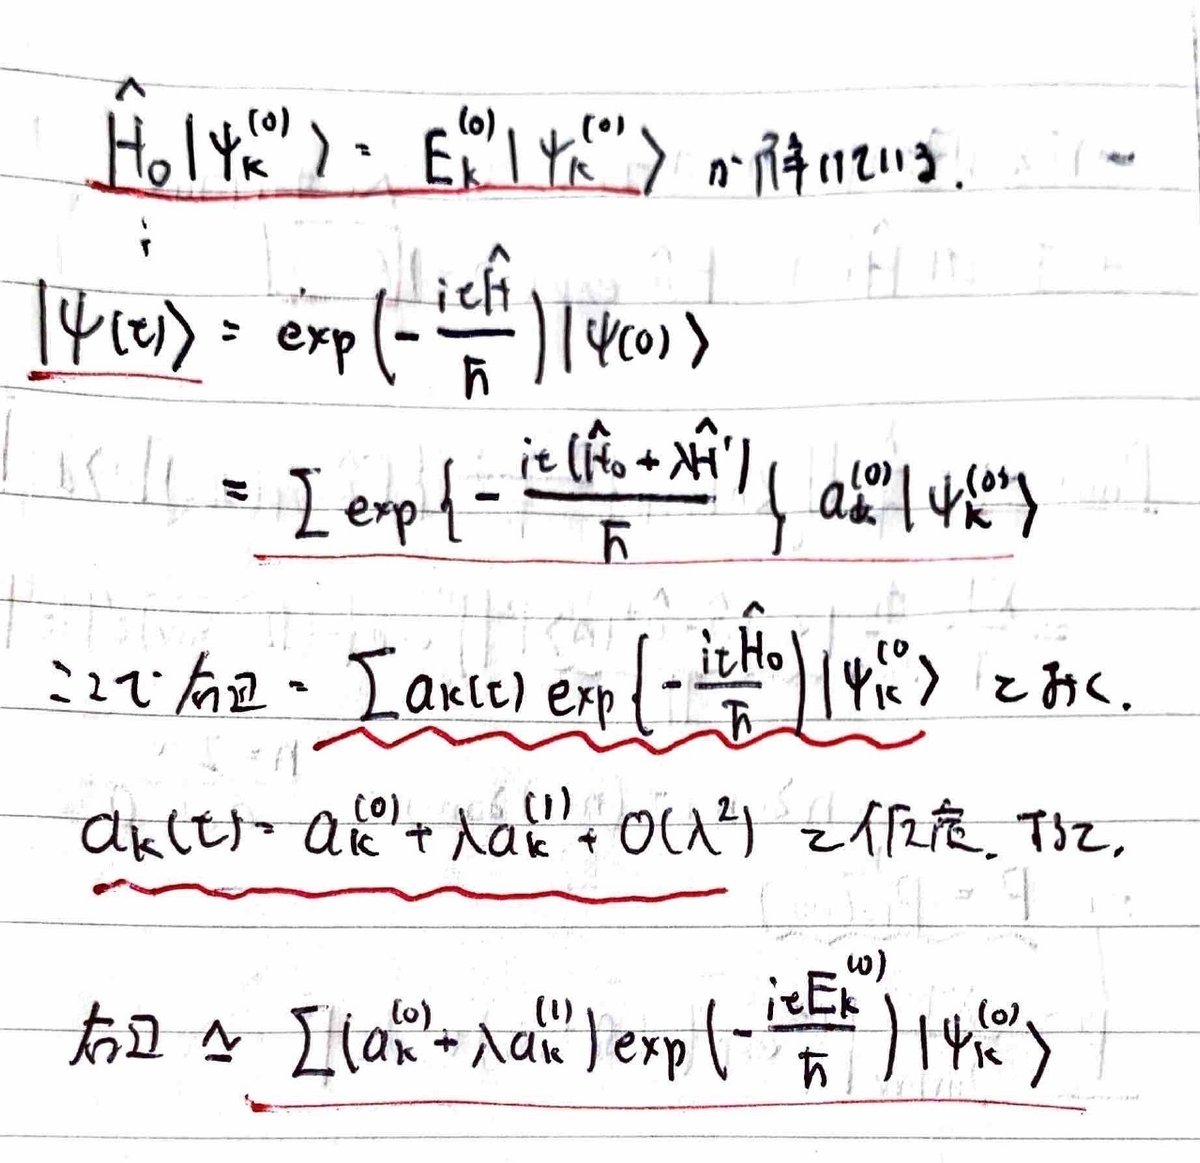 Ĥ₀|ψₖ⁽⁰⁾⟩ = Eₖ⁽⁰⁾|ψₖ⁽⁰⁾⟩ が解けている.
;
|ψ(t)⟩ = exp(-itĤ/ħ)|ψ(0)⟩
= Σ exp{-it(Ĥ₀+λĤ')/ħ} aₖ⁽⁰⁾|ψₖ⁽⁰⁾⟩
ここで右辺 = Σ aₖ(t) exp{-itĤ₀/ħ)|ψₖ⁽⁰⟩ とおく.
aₖ(t) = aₖ⁽⁰⁾ + λaₖ⁽¹⁾ + O(λ²) と仮定. すると,
右辺 ≃ Σ(aₖ⁽⁰⁾ + λaₖ⁽¹⁾) exp(-itEₖ⁽⁰⁾/ħ)|ψₖ⁽⁰⁾⟩